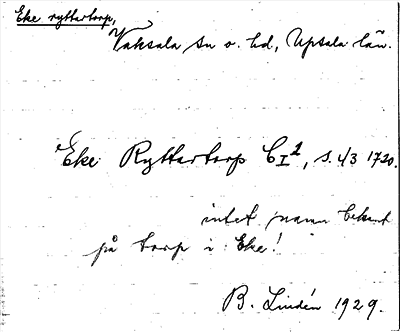 Eke ryttartorp,
Vaksala sn o. hd, Upsala län.
Eke Ryttartorp C I 2, s. 4/3 1720.
intet namn bekant
på torp i Eke!
B. Lindén 1929.